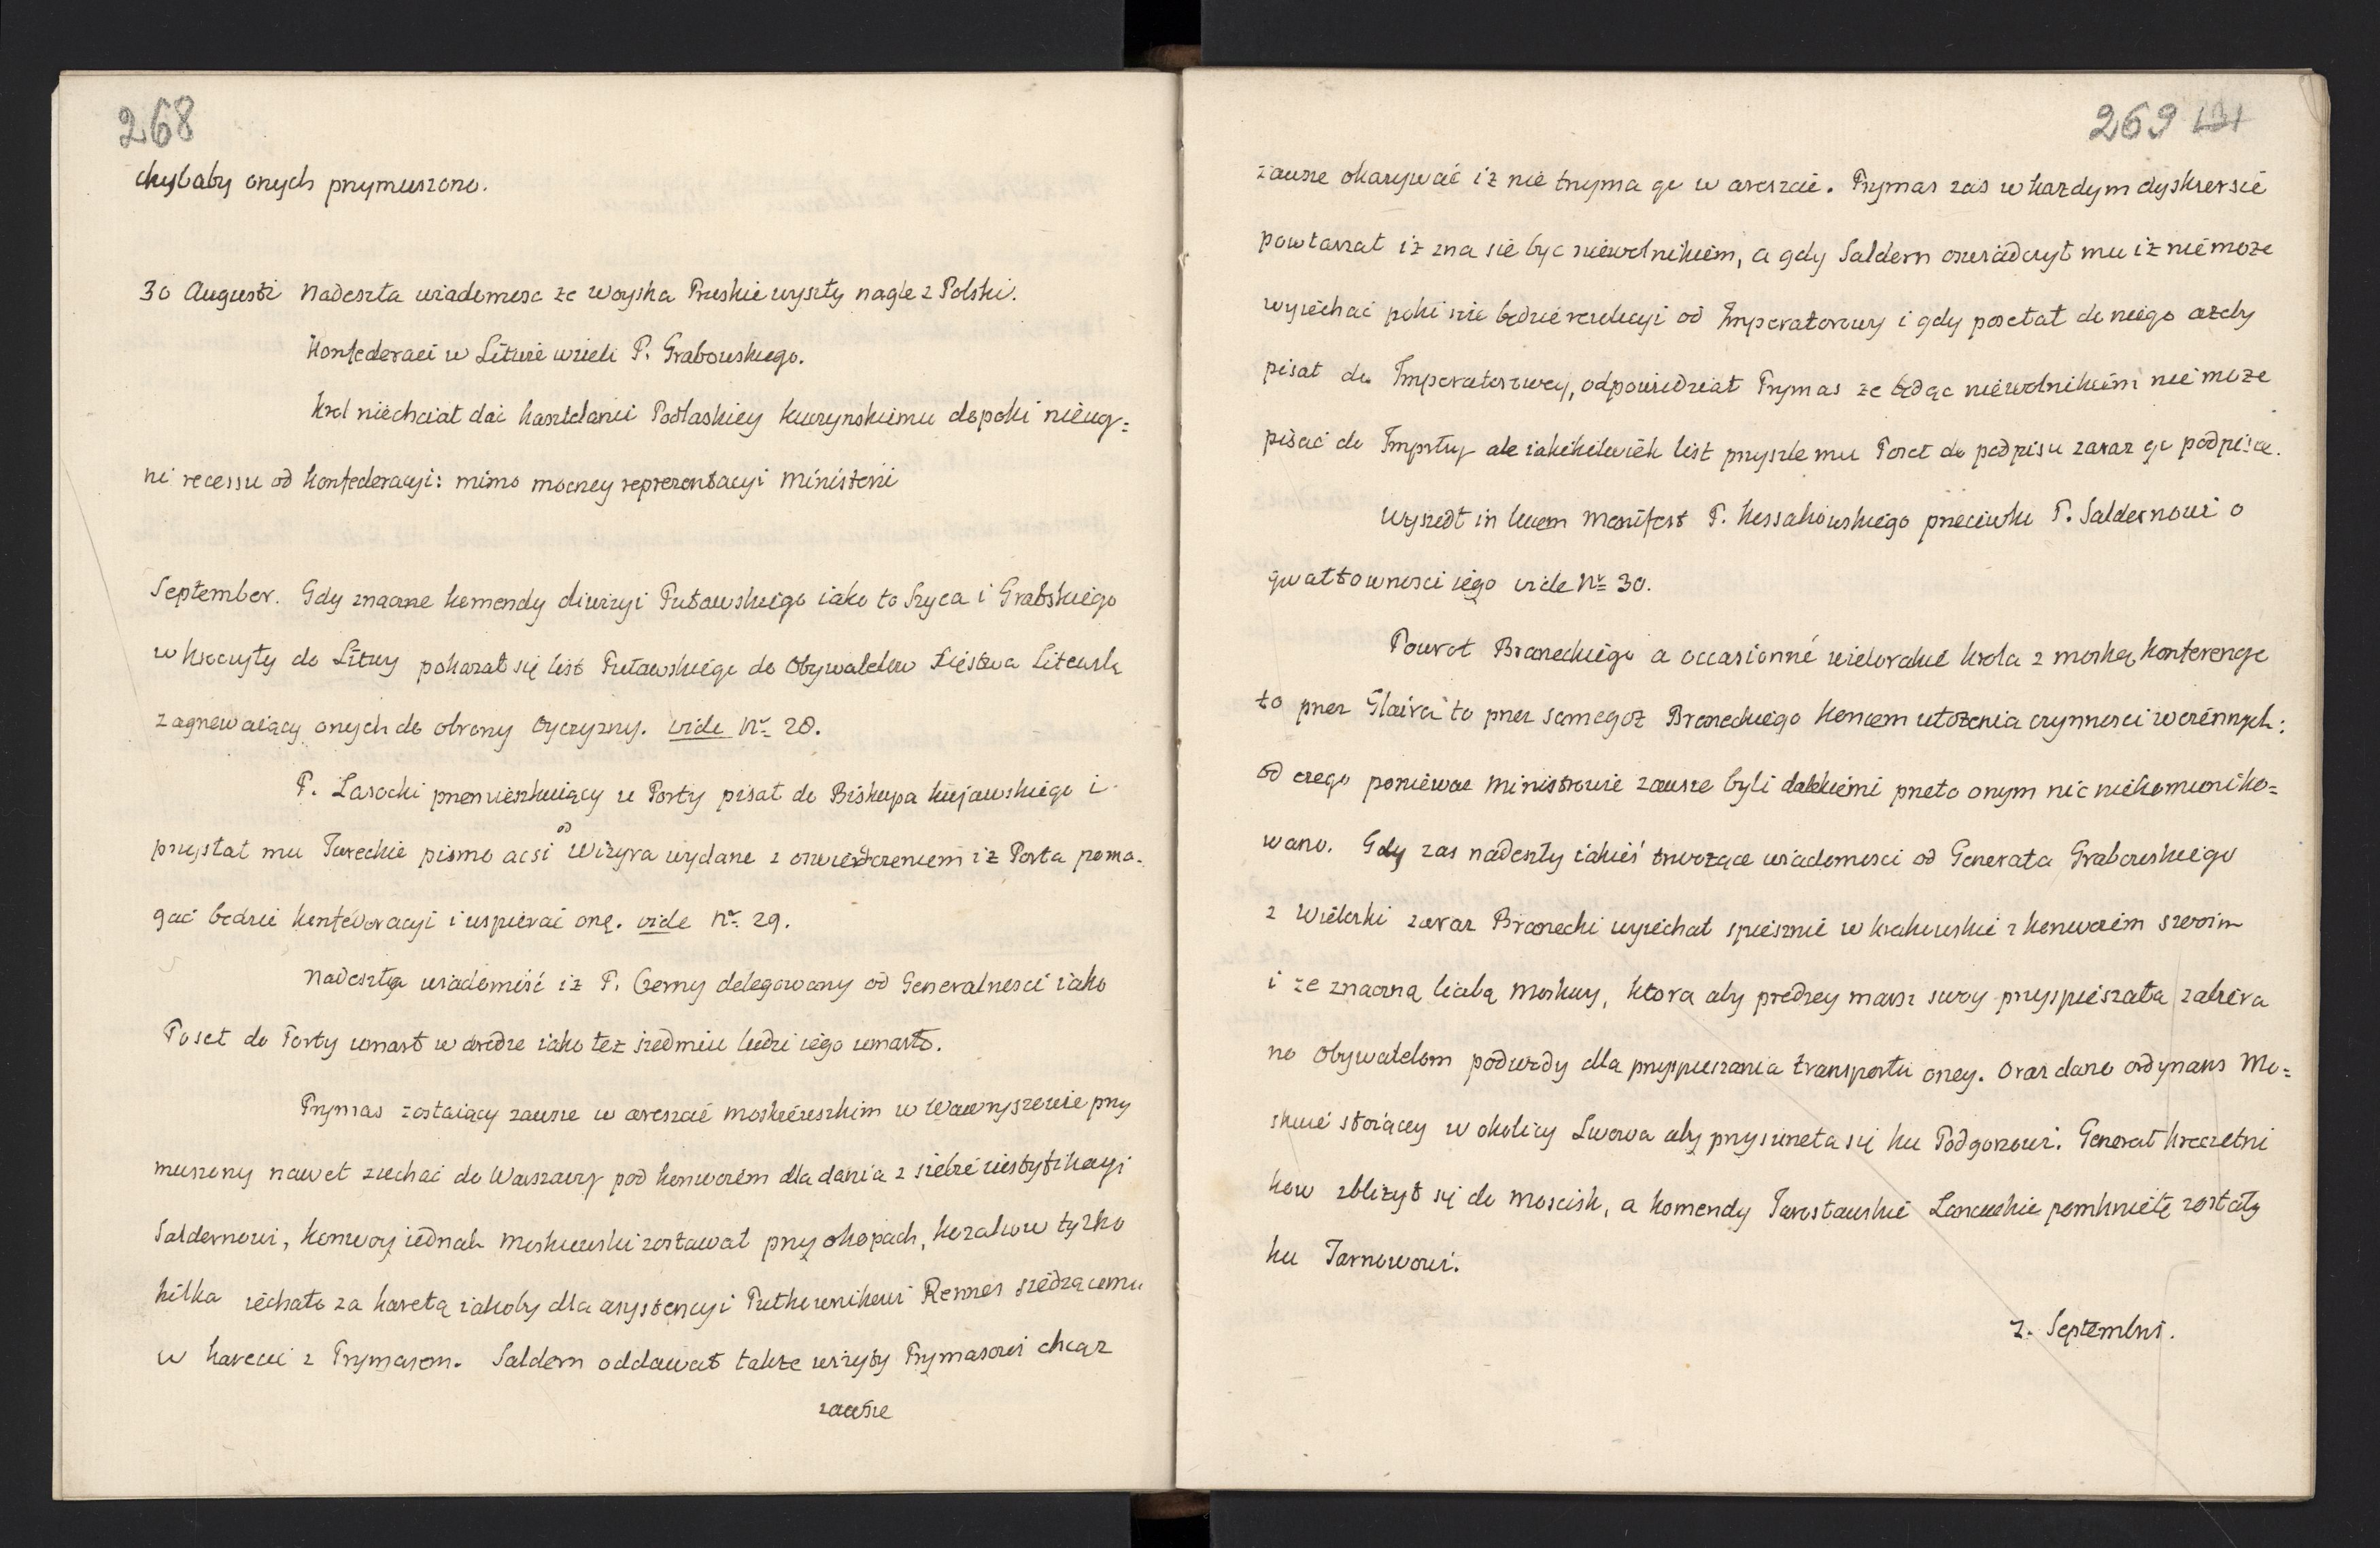 268
chybaby onych przymuszono.
30 Augusti Nadeszła wiadomosc że Woyska Pruskie wyszły nagle z Polski.
Konfederaci w Litwie wzieli P. Grabowskiego.
Krol niechciał dać kasztelanii Podlaskiey Kuczynskiemu dopoki nieucz=
ni recessu od Konfederacyi: mimo mocney reprezentacyi Ministerii
September. Gdy znaczne komendy diwizyi Puławskiego iako to Szyca i Grabskiego
wkroczyły do Litwy pokazał się list Pułaskiego do Obywatelow Xięstwa Litewsk
zagrzewaiący onych do obrony Oyczyzny. vide Nr 28.
P. Lasocki przemieszkuiący u Porty pisał do Biskupa Kujawskiego i
przysłał mu Tureckie pismo acsi od Wizyra wydane z oswiedczeniem iż Porta poma-
gać będzie konfederacyi i uspierać onę. vide Nr. 29.
Nadeszła wiadomość iż P. Czerny delegowany od Generalnosci iako
Poseł do Porty umarł w drodze iako też siedmiu ludzi iego umarło.
Prymas zostaiący zawsze w areszcie moskiewskim w Wawrzyszewie przy
muszony nawet ziechać do Warszawy pod konwoiem dla dania z siebie iustyfikacyi
Saldernowi, konwoy iednak moskiewski zostawał przy okopach, kozakow tylko
kilka iechało za karetą iakoby dla asystencyi Pułkownikowi Rennes siedzącemu
w karecie z Prymasem. Saldern oddawał także wizyty Prymasowi chcąc
zawsze
269 131
zawsze okazywać iż nie trzyma go w areszcie. Prymas zaś w każdym dyskursie
powtarzał iż zna sie być niewolnikiem, a gdy Saldern oswiadczył mu iż niemoże
wyiechać poki nie będzie rezolucyi od Imperatorowy i gdy posełał do niego ażeby
pisał do Imperatorowey, odpowiedział Prymas że będąc niewolnikiem nie może
pisać do Imprtwy ale iakikolwiek list przyszle mu Poseł do podpisu zaraz go podpisze.
Wyszedł in lucem Manifest P. Kossakowskiego przeciwko P. Saldernowi o
gwałtowności iego vide Nr 30.
Powrot Braneckiego a occasionné wielorakie krola z moskq konferencje
to przez Glaira to przez samegoż Braneckiego koncem ułożenia czynnosci woiennych:
od czego ponieważ Ministrowie zawsze byli dalekiemi przeto onym nic niekomuniko=
wano. Gdy zas nadeszły iakieś trwożące wiadomosci od Generała Grabowskiego
z Wielicki zaraz Branecki wyiechał spiesznie w Krakowskie z konwoiem swoim
i ze znaczną liczbą Moskwy, ktora aby prędzey marsz swoy przyspieszała zabiera
no Obywatelom podwody dla przyspieszania transportu oney. Oraz dano ordynans Mo=
skwie stoiącey w okolicy Lwowa aby przysuneła się ku Podgorzowi. Generał Kreczetni
kow zbliżył się do Moscisk, a komendy Jarosławskie Lancuckie pomkniętę zostały
ku Tarnowowi.
2. Septembri.